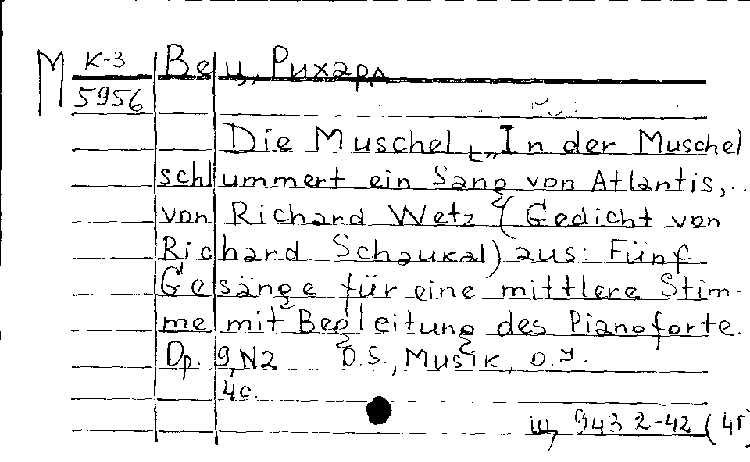 М К-3 Вец, Рихард
5956
Die Muschel „In der Muschel
schlummert ein Sang von Atlantis,..
von Richard Wetz (Gedicht von
Richard Schaukal) aus: Fünf
Gesänge für eine mittlere Stim-
me mit Begleitung des Pianoforte.
Op. 9, N2 D.S., Musik, o.J.
4c.
ш, 943 2-42